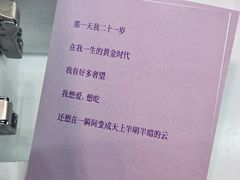 那一天我二十一岁
在我一生的黄金时代
我有好多奢望
我想爱，想吃
还想在一瞬间变成天上半明半暗的云